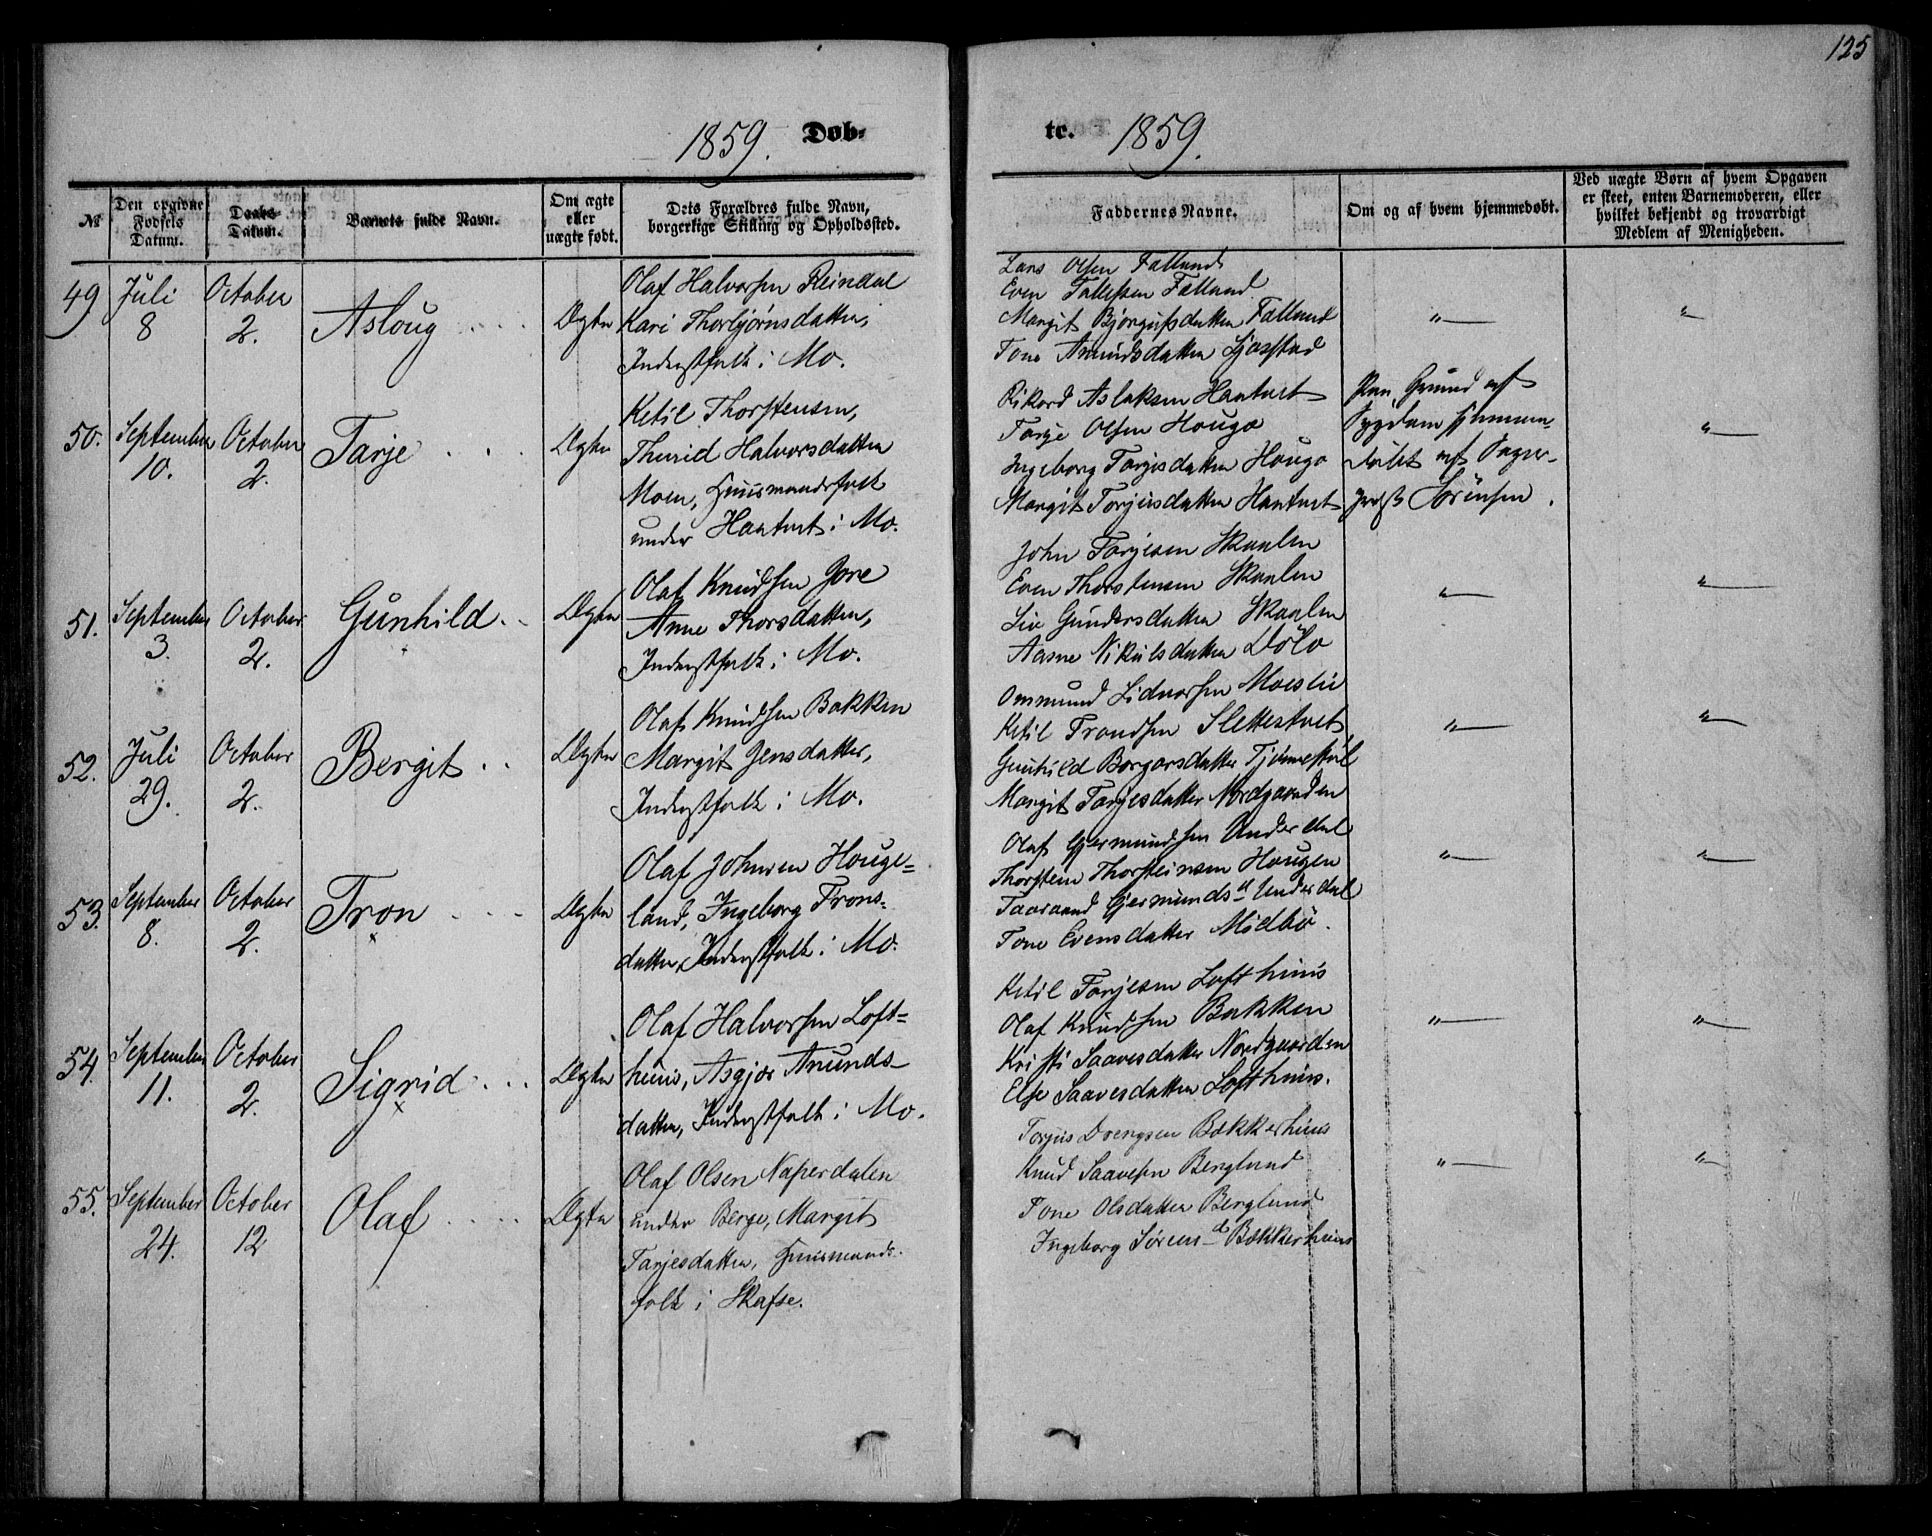 125
1859. Døb-
te. 1859.
№
Den opgivne Fødsels Datum.
Daabs-Datum.
Barnets fulde Navn.
Om ægte eller uægte født.
Dets Forældres fulde Navn, borgerlige Stilling og Opholdssted.
Faddernes Navne.
Om og af hvem hjemmedøbt.
Ved uægte Børn af hvem Opgaven er skeet, enten Barnemoderen, eller hvilket bekjendt og troværdigt Medlem af Menigheden.
49
Juli 8
October 2.
Asloug
Ægte
Olaf Halvorsen Reindal
Kari Thorbjørnsdatter,
Inderstfolk i Mo.
Lars Olsen Fælland
Even Tallefsen Fælland
Margit Bjørgufsdatter Fælland
Tone Amundsdatter
"—
"—
50.
September 10.
October 2.
Tarje
Ægte
Ketil Thorstensen,
Thurid Halvorsdatter
Moen, Huusmandsfolk
under Haatvet i Mo.
Rikard Aslaksen Haatvet
Tarje Olsen Hougo
Ingeborg Tarjesdatter Hougo
Margit Torjusdatter Haatvet
Paa Grund af
Sygdom hjemme-
døbt af
Sørensen.
"—
51.
September 3.
October 2.
Gunhild
Ægte
Olaf Knudsen Gore
Anne Thorsdatter,
Inderstfolk i Mo.
John Tarjesen Skaalen
Even Thorstensen Skaalen
Liv Gundersdatter Skaalen
Aasne Nikulsdatter Dølo
"—
"—
52.
Juli 29.
October 2.
Bergit
Ægte
Olaf Knudsen Bakken
Margit Jensdatter,
Inderstfolk i Mo.
Ommund Lidvorsen Moeslii
Ketil Trondsen Slettestvet
Gunhild Borgarsdatter Tjønnestøl
Margit Tarjesdatter Nordgaarden
"—
"—
53.
September 8.
October 2.
Tron
Ægte
Olaf Johnsen Houge-
land, Ingeborg Trons-
datter, Inderstfolk i Mo.
Olaf Gjermundsen Underdal
Thorstein Thorsteinsen Hougen
Taaraand Gjermundsd Underdal
Tone Evensdatter Midbø.
"—
"—
54.
September 11.
October 2.
Sigrid
Ægte
Olaf Halvorsen Loft-
huus, Asgjær Anunds-
datter, Inderstfolk i Mo.
Ketil Tarjesen Lofthuus
Olaf Knudsen Bakken
Kristi Saavesdatter Nordgaarden
Else Saavesdatter Lofthuus.
"—
"—
55.
September 24.
October 12
Olaf
Ægte
Olaf Olsen Naperdalen
under Berge, Margit
Tarjesdatter, Huusmands-
folk i Skafse.
Torjus Drengsen Bekkerhuus
Knud Saavesen Berglund
Tone Olsdatter Berglund
Ingeborg Sørensd Bekkerhuus
"—
"—